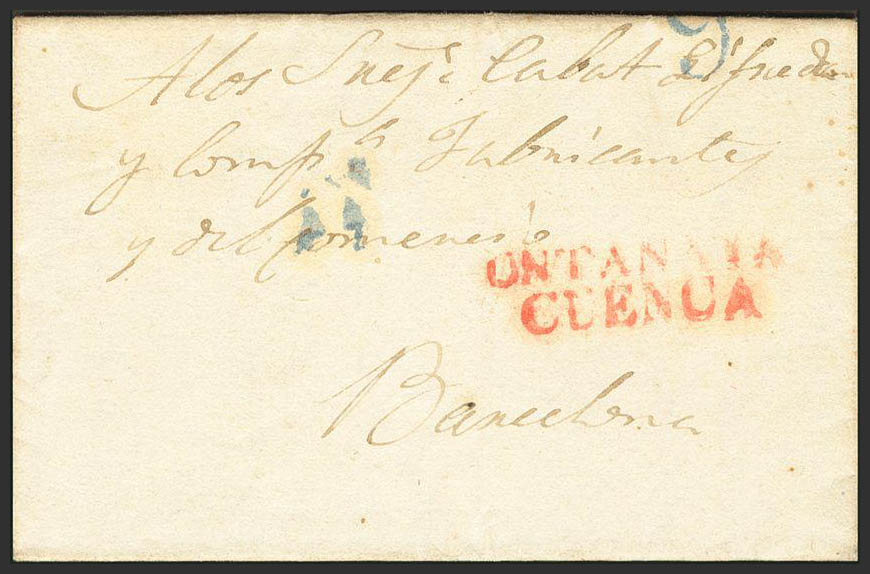 9
A los Sres Cabat
y Compª Fabricantes
y del Comercio
ONTANAYA
CUENCA
Barcelona